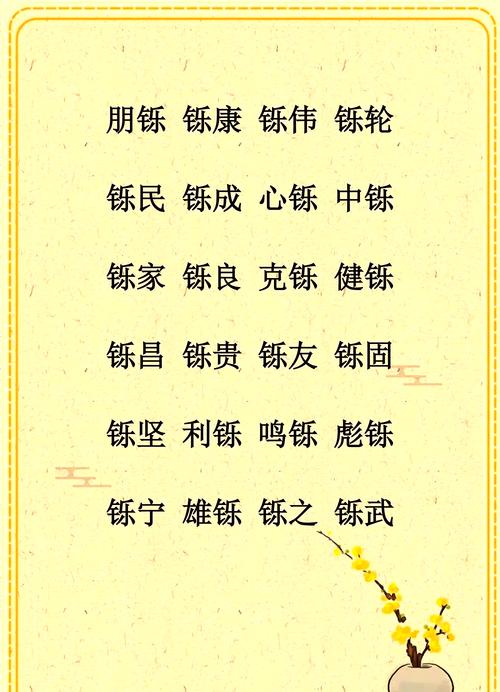 朋铄 铄康 铄伟 铄轮
铄民 铄成 心铄 中铄
铄家 铄良 克铄 健铄
铄昌 铄贵 铄友 铄固
铄坚 利铄 鸣铄 彪铄
铄宁 雄铄 铄之 铄武